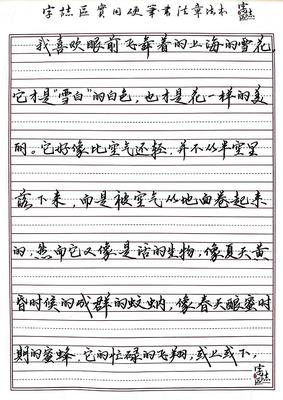 字旌区实用硬笔书法章法本
我喜欢眼前飞舞着的上海的雪花,
它才是“雪白”的白色,也才是花一样的美
丽。它好像比空气还轻,并不从半空里
落下来,而是被空气从地面卷起来
的,然而它又像是活的生物,像夏天黄
昏时候的成群的蚊蚋,像春天酿蜜时
期的蜜蜂,它的忙碌的飞翔,或上或下,